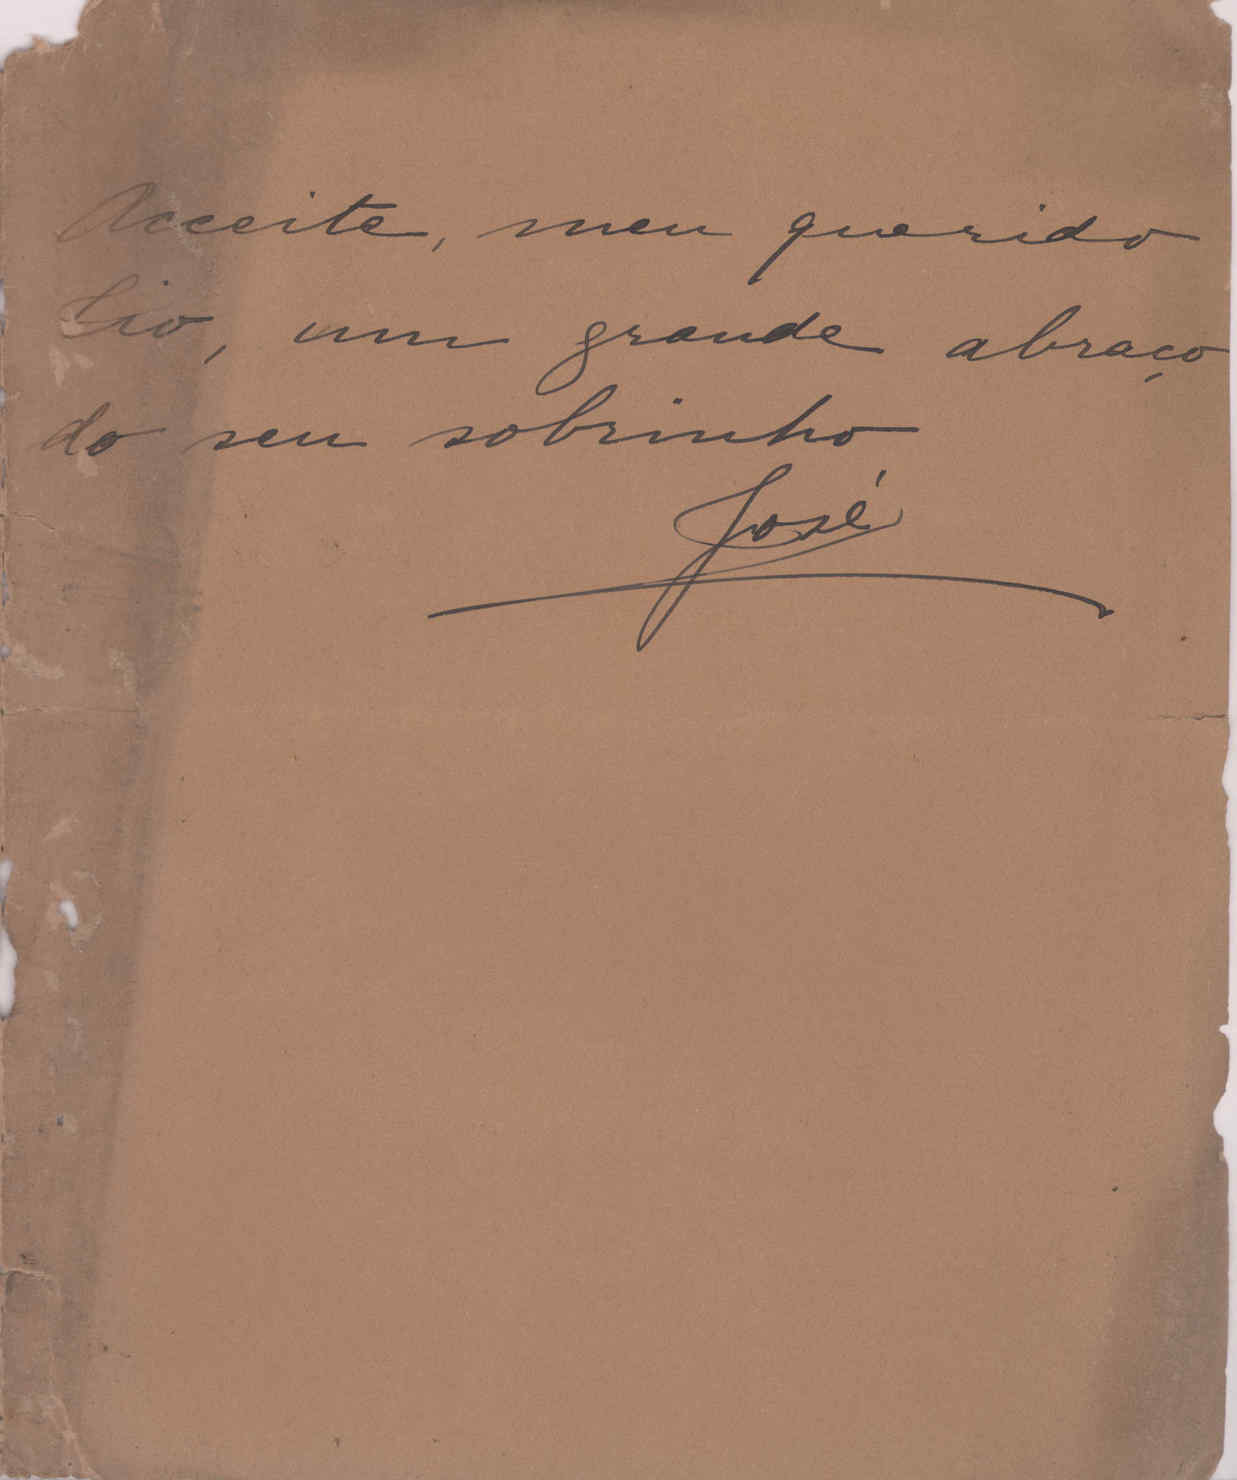 Acceite, meu querido
tio, um grande abraço
do seu sobrinho
José